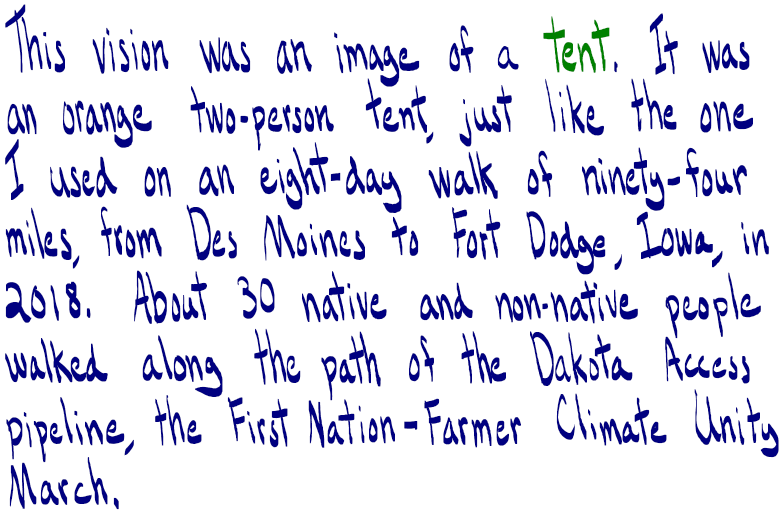 This vision was an image of a tent. It was
an orange two-person tent, just like the one
I used on an eight-day walk of ninety-four
miles, from Des Moines to Fort Dodge, Iowa, in
2018. About 30 native and non-native people
walked along the path of the Dakota Access
pipeline, the First Nation-Farmer Climate Unity
March.